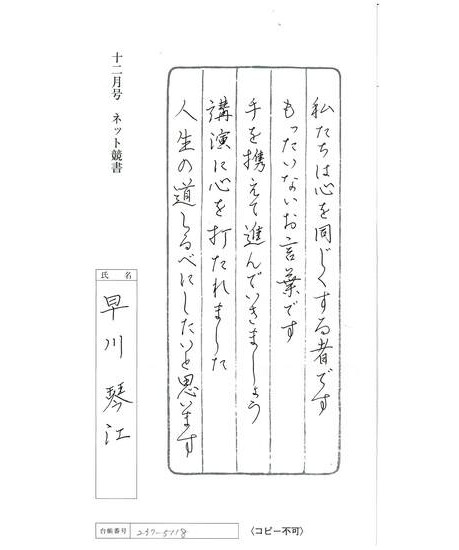 私たちは心を同じくする者です
もったいないお言葉です
手を携えて進んでいきましょう
講演に心を打たれました
人生の道しるべにしたいと思います
十二月号 ネット競書
氏名
早川琴江
台帳番号 237-5118
〈コピー不可〉